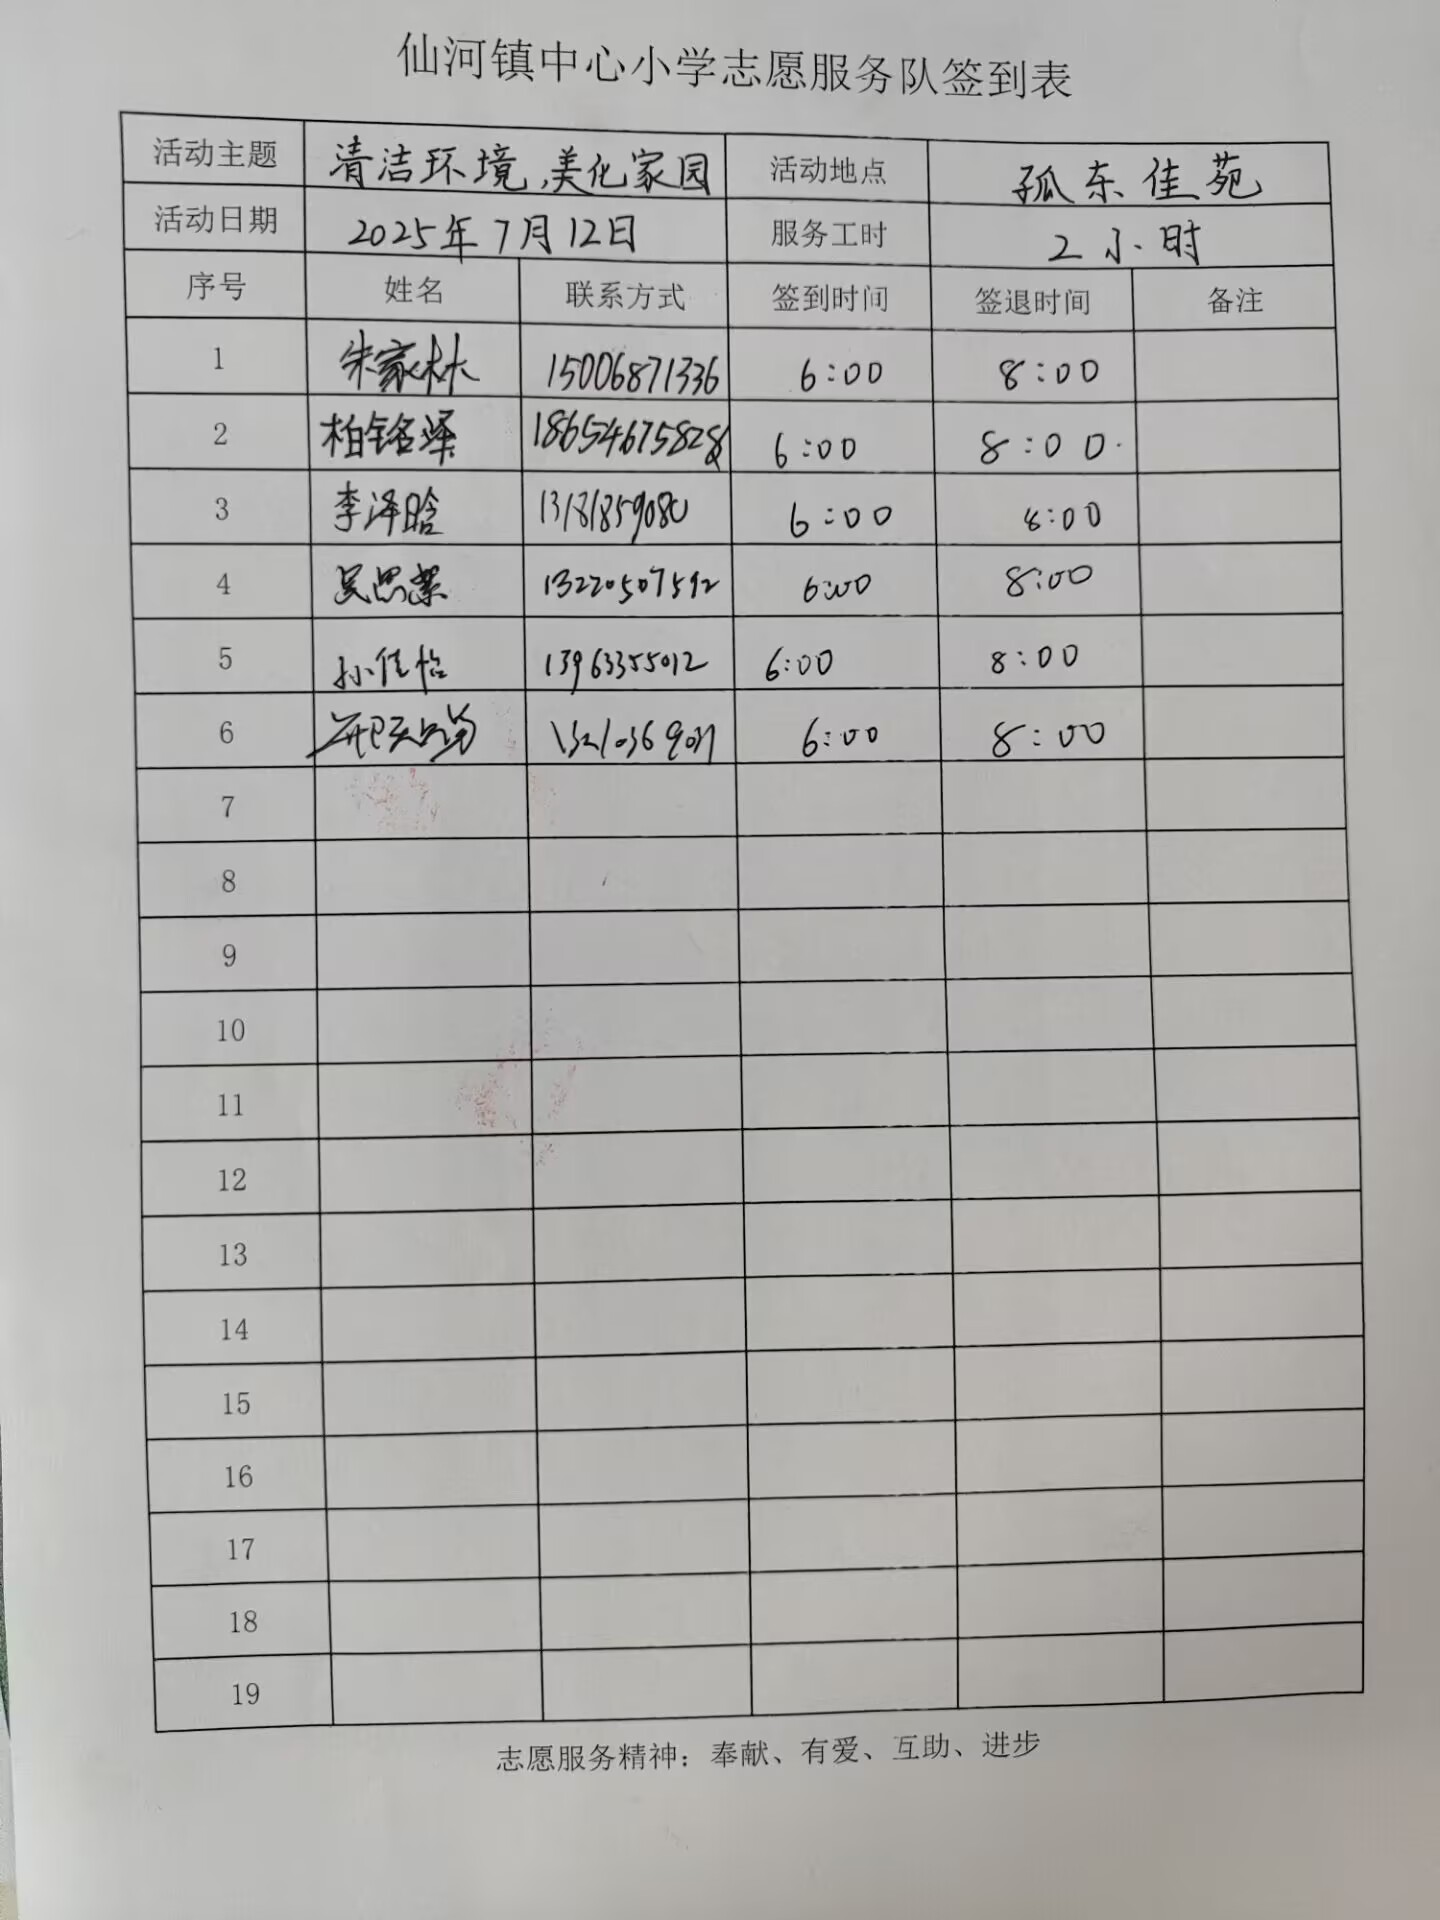 仙河镇中心小学志愿服务队签到表
活动主题 清洁环境,美化家园 活动地点 孤东佳苑
活动日期 2025年7月12日 服务工时 2小时
序号 姓名 联系方式 签到时间 签退时间 备注
1 朱家林 15006871336 6:00 8:00
2 柏铭泽 18654675828 6:00 8:00.
3 李泽晗 13181859080 6:00 8:00
4 13220507592 6:00 8:00
5 孙佳怡 13963355012 6:00 8:00
6 6:00 8:00
7
8
9
10
11
12
13
14
15
16
17
18
19
志愿服务精神：奉献、有爱、互助、进步